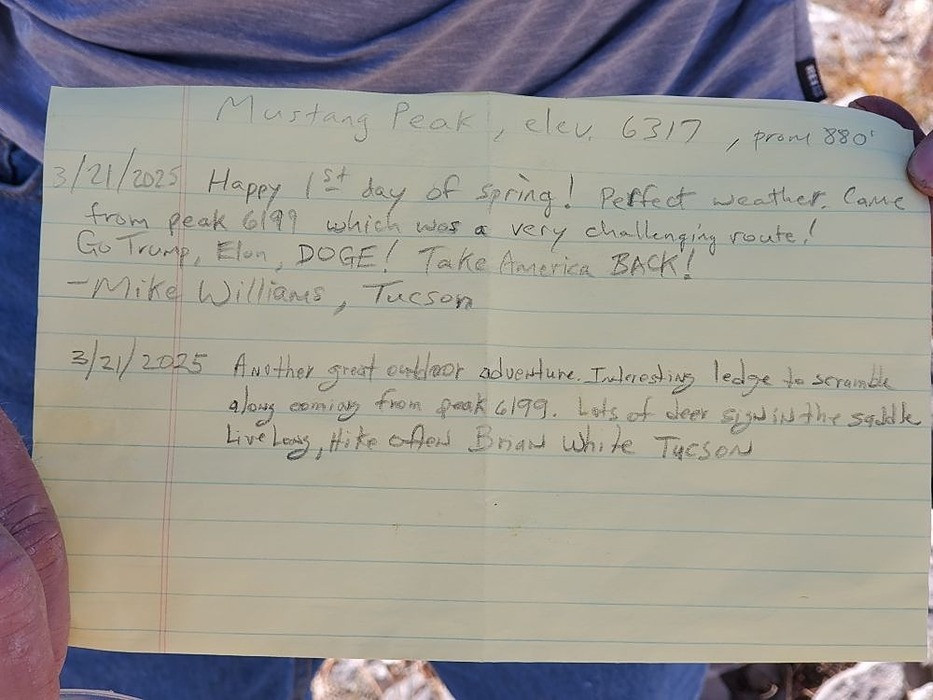 Mustang Peak, elev. 6317, prom 880'
3/21/2025 Happy 1st day of spring! Perfect weather. Came
from peak 6199 which was a very challenging route!
Go Trump, Elon, DOGE! Take America BACK!
-Mike Williams, Tucson
3/21/2025 Another great outdoor adventure. Interesting ledge to scramble
along coming from peak 6199. Lots of deer sign in the saddle
Live Long, Hike often Brian White Tucson